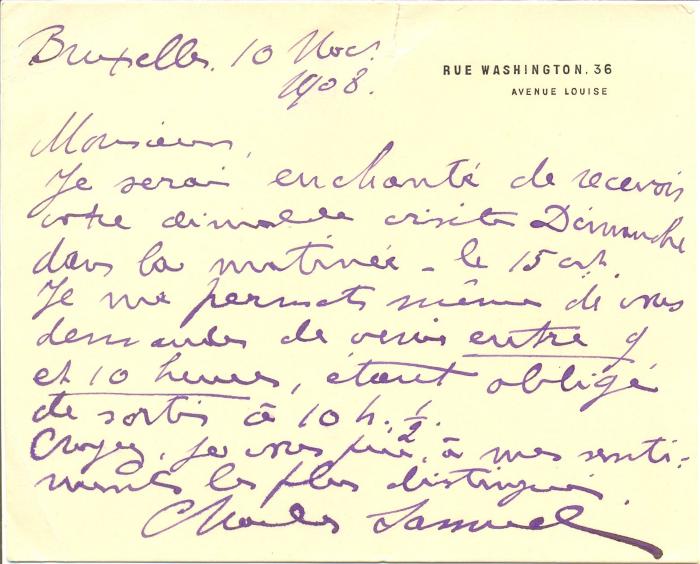 Bruxelles. 10 Nov.
1908.
RUE WASHINGTON. 36
AVENUE LOUISE
Monsieur,
Je serai enchanté de recevoir
votre aimable visite Dimanche
dans la matinée - le 15 ct.
Je me permets même de vous
demander de venir entre 9
et 10 heures, étant obligé
de sortir à 10 h. 1/2.
Croyez, je vous prie, à mes senti-
ments les plus distingués.
Charles Samuel